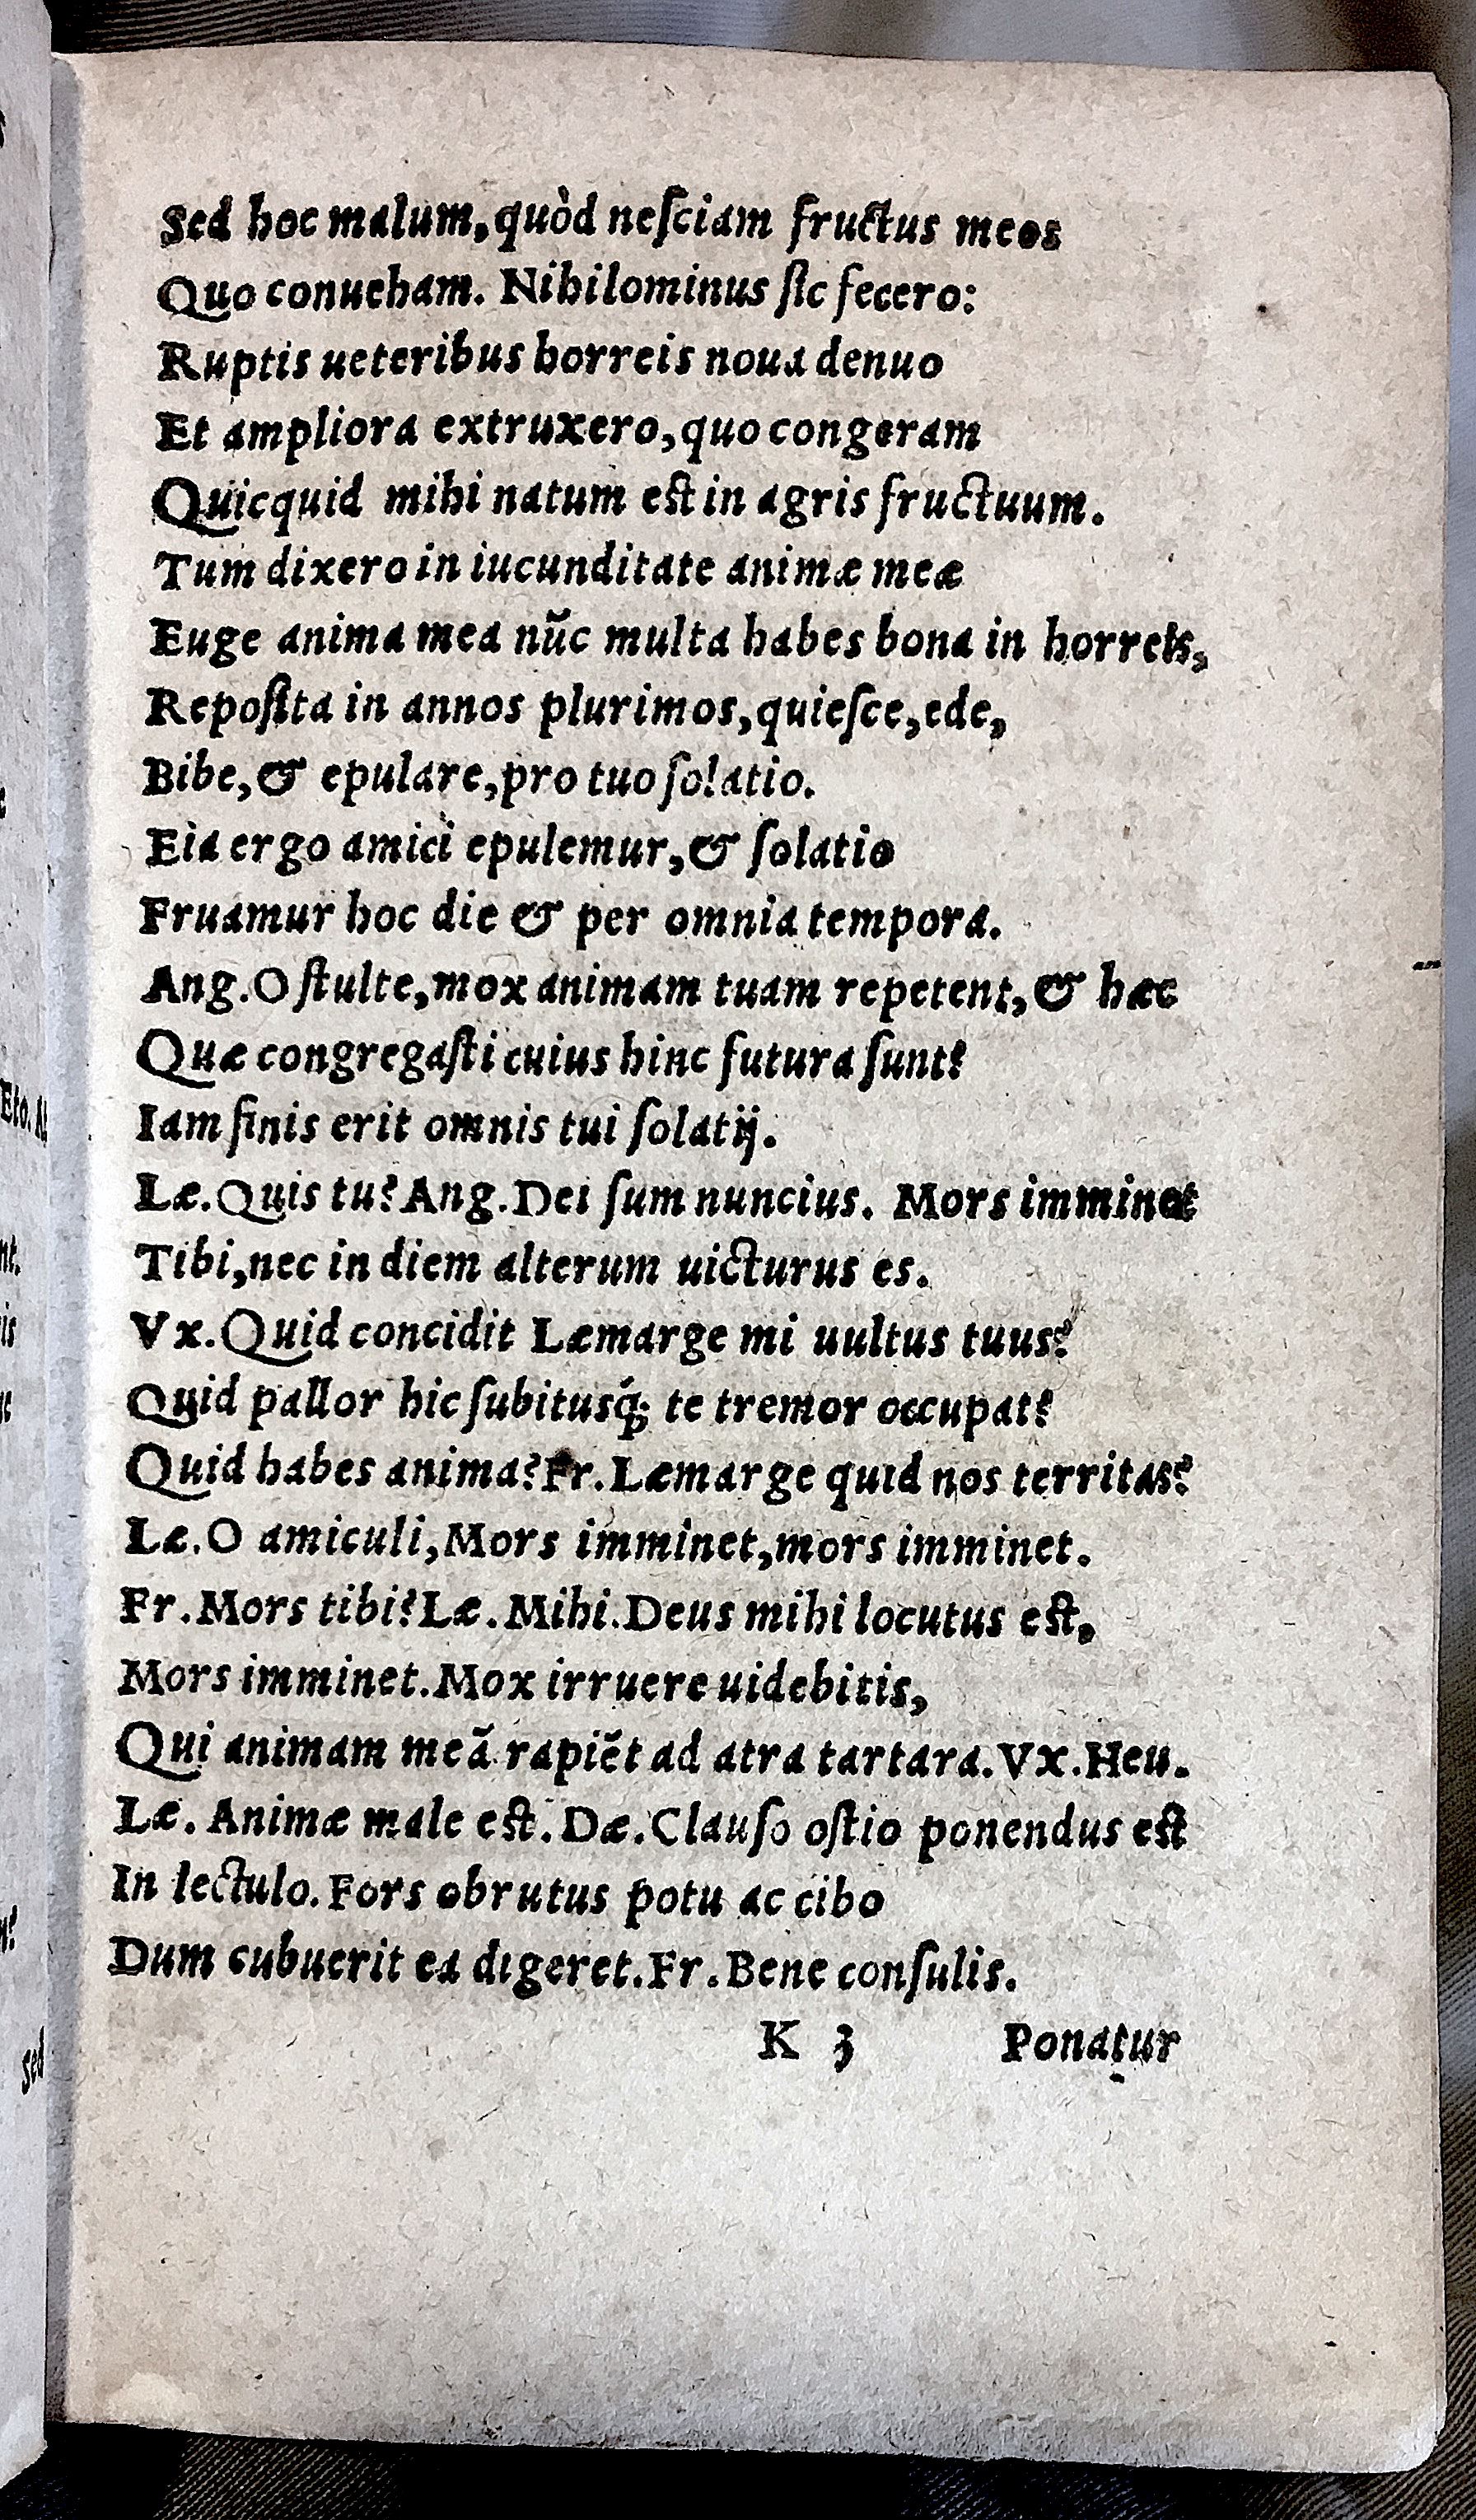 Sed hoc malum, quòd neſciam fructus meos
Quo conueham. Nihilominus ſic fecero:
Ruptis ueteribus horreis noua denuo
Et ampliora extruxero, quo congeram
Quicquid mihi natum est in agris fructuum.
Tum dixero in iucunditate animæ meæ
Euge anima mea nũc multa habes bona in horreis,
Repoſita in annos plurimos, quieſce, ede,
Bibe, & epulare, pro tuo ſolatio.
Eia ergo amici epulemur, & ſolatio
Fruamur hoc die & per omnia tempora.
Ang. O ſtulte, mox animam tuam repetent, & hæc
Quæ congregaſti cuius hinc futura ſunt?
Iam finis erit omnis tui ſolatij.
Læ. Quis tu? Ang. Dei ſum nuncius. Mors imminet
Tibi, nec in diem alterum uicturus es.
Vx. Quid concidit Læmarge mi uultus tuus?
Quid pallor hic ſubitusq́; te tremor occupat?
Quid habes anima? Fr. Læmarge quid nos territas?
Læ. O amiculi, Mors imminet, mors imminet.
Fr. Mors tibi? Læ. Mihi. Deus mihi locutus est,
Mors imminet. Mox irruere uidebitis,
Qui animam meã rapiẽt ad atra tartara. Vx. Heu.
Læ. Animæ male est. Dæ. Clauſo oſtio ponendus est
In lectulo. Fors obrutus potu ac cibo
Dum cubuerit ea digeret. Fr. Bene conſulis.
K 3 Ponatur